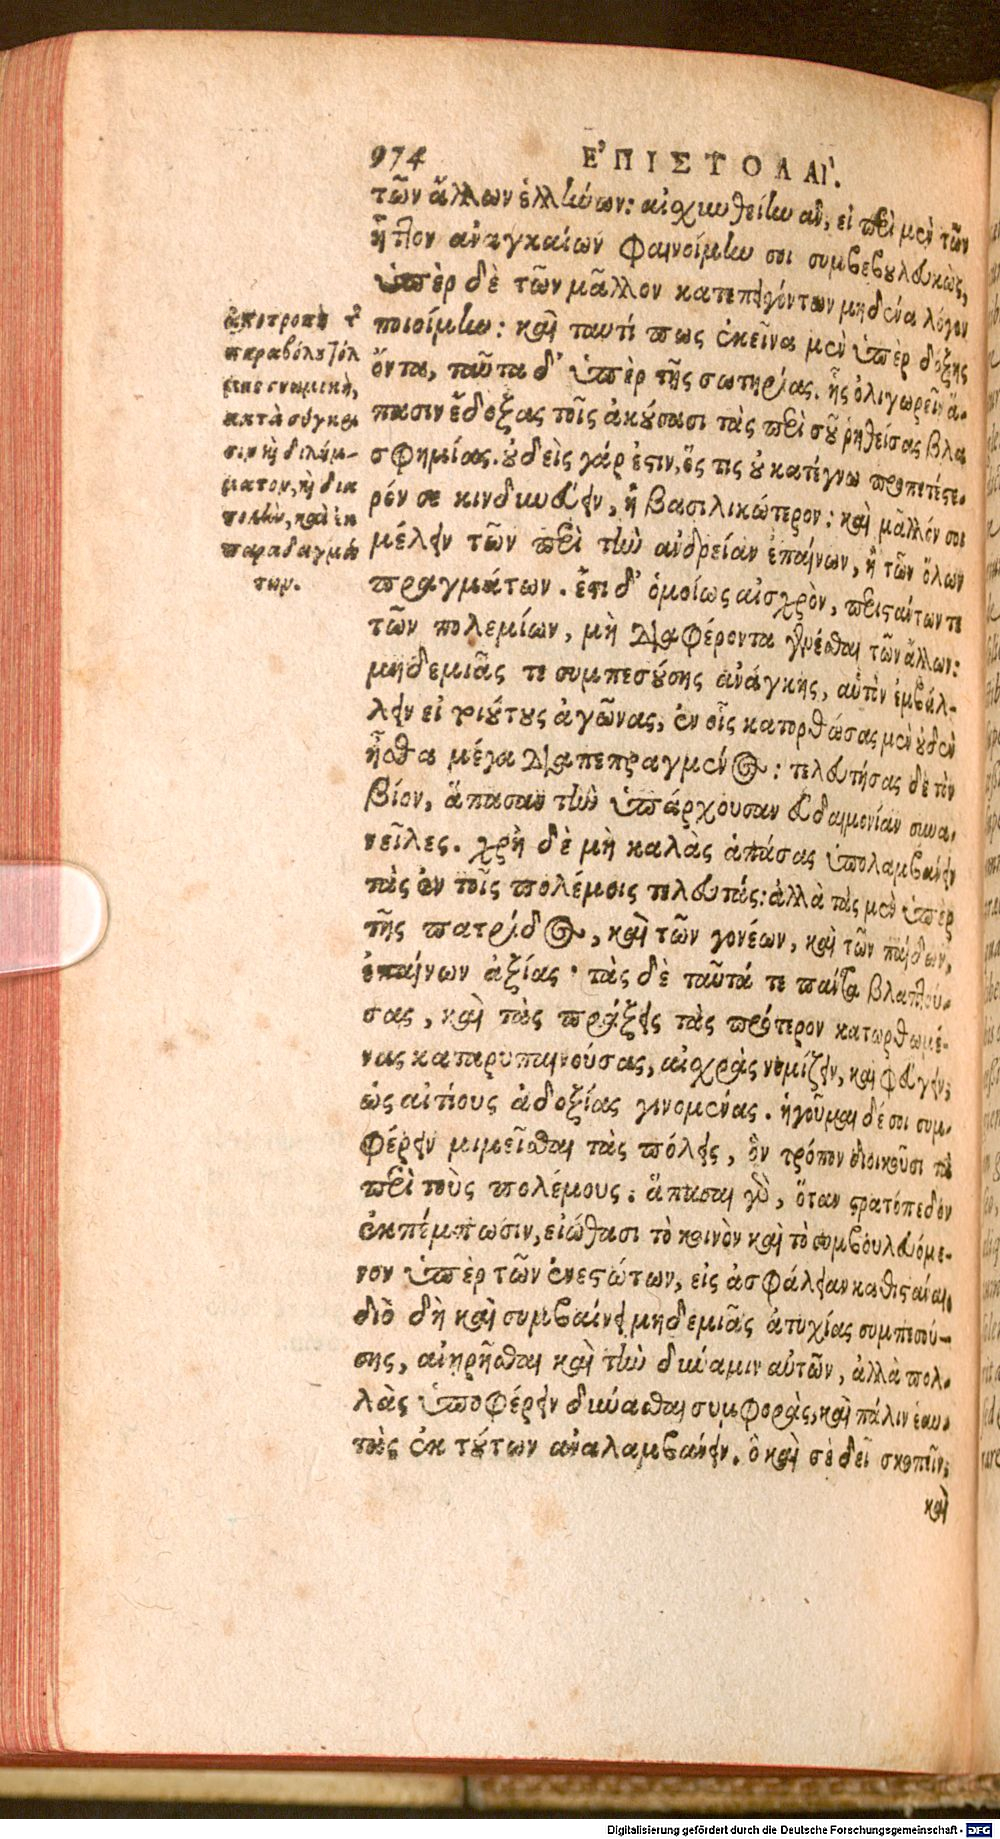 974 ἘΠΙΣΤΟΛΑΊ.
τῶν ἄλλων ἑλλήνων: αἰσχυνθείην ἂν, εἰ περὶ μὲν τῶν
ἧττον ἀναγκαίων φαινοίμην σοι συμβεβουλευκὼς,
ὑπὲρ δὲ τῶν μᾶλλον κατεπειγόντων μηδένα λόγον
ποιοίμην: καὶ ταυτί πως ἐκεῖνα μὲν ὑπὲρ δόξης
ὄντα, ταῦτα δ' ὑπὲρ τῆς σωτηρίας. ἧς ὀλιγωρεῖν ἅ-
πασιν ἔδοξας τοῖς ἀκούσασι τὰς περὶ σοῦ ῥηθείσας βλα
σφημίας. οὐδεὶς γάρ ἐστιν, ὅς τις οὐ κατέγνω προπετέστε-
ρόν σε κινδυνεύειν, ἢ βασιλικώτερον: καὶ μᾶλλόν σοι
μέλειν τῶν περὶ τὴν ἀνδρείαν ἐπαίνων, ἢ τῶν ὅλων
πραγμάτων. ἔστι δ' ὁμοίως αἰσχρὸν, περιστάντων τε
τῶν πολεμίων, μὴ διαφέροντα γενέσθαι τῶν ἄλλων:
μηδεμιᾶς τε συμπεσούσης ἀνάγκης, αὑτὸν ἐμβάλ-
λειν εἰς τοιούτους ἀγῶνας, ἐν οἷς κατορθώσας μὲν οὐδὲν
ἦσθα μέγα διαπεπραγμένος: τελευτήσας δὲ τὸν
βίον, ἅπασαν τὴν ὑπάρχουσαν εὐδαιμονίαν συνα-
νεῖλες. χρὴ δὲ μὴ καλὰς ἁπάσας ὑπολαμβάνειν
τὰς ἐν τοῖς πολέμοις τελευτάς: ἀλλὰ τὰς μὲν ὑπὲρ
τῆς πατρίδος, καὶ τῶν γονέων, καὶ τῶν παίδων,
ἐπαίνων ἀξίας· τὰς δὲ ταῦτά τε πάντα βλαπτού-
σας, καὶ τὰς πράξεις τὰς πρότερον κατωρθωμέ-
νας καταρυπαινούσας, αἰσχρὰς νομίζειν, καὶ φεύγειν,
ὡς αἰτίους ἀδοξίας γινομένας. ἡγοῦμαι δέ σοι συμ-
φέρειν μιμεῖσθαι τὰς πόλεις, ὃν τρόπον διοικοῦσι τὰ
περὶ τοὺς πολέμους: ἅπασαι γὰρ, ὅταν στρατόπεδον
ἐκπέμπωσιν, εἰώθασι τὸ κοινὸν καὶ τὸ συμβουλευόμε-
νον ὑπὲρ τῶν ἐνεστώτων, εἰς ἀσφάλειαν καθιστάναι,
διὸ δὴ καὶ συμβαίνει μηδεμιᾶς ἀτυχίας συμπεσού-
σης, ἀνῃρῆσθαι καὶ τὴν δύναμιν αὐτῶν, ἀλλὰ πολ-
λὰς ὑποφέρειν δύνασθαι συμφορὰς, καὶ πάλιν ἑαυ-
τὰς ἐκ τούτων ἀναλαμβάνειν. ὃ καὶ σὲ δεῖ σκοπεῖν,
καὶ
ἀποτροπὴ τ
παραβόλου τόλ
μης γνωμικὴ,
κατὰ σύγκρι
σιν καὶ διλήμ-
ματον, καὶ δια
στολὴν, καὶ ἐκ
παραδειγμά
των.
Digitalisierung gefördert durch die Deutsche Forschungsgemeinschaft - DFG